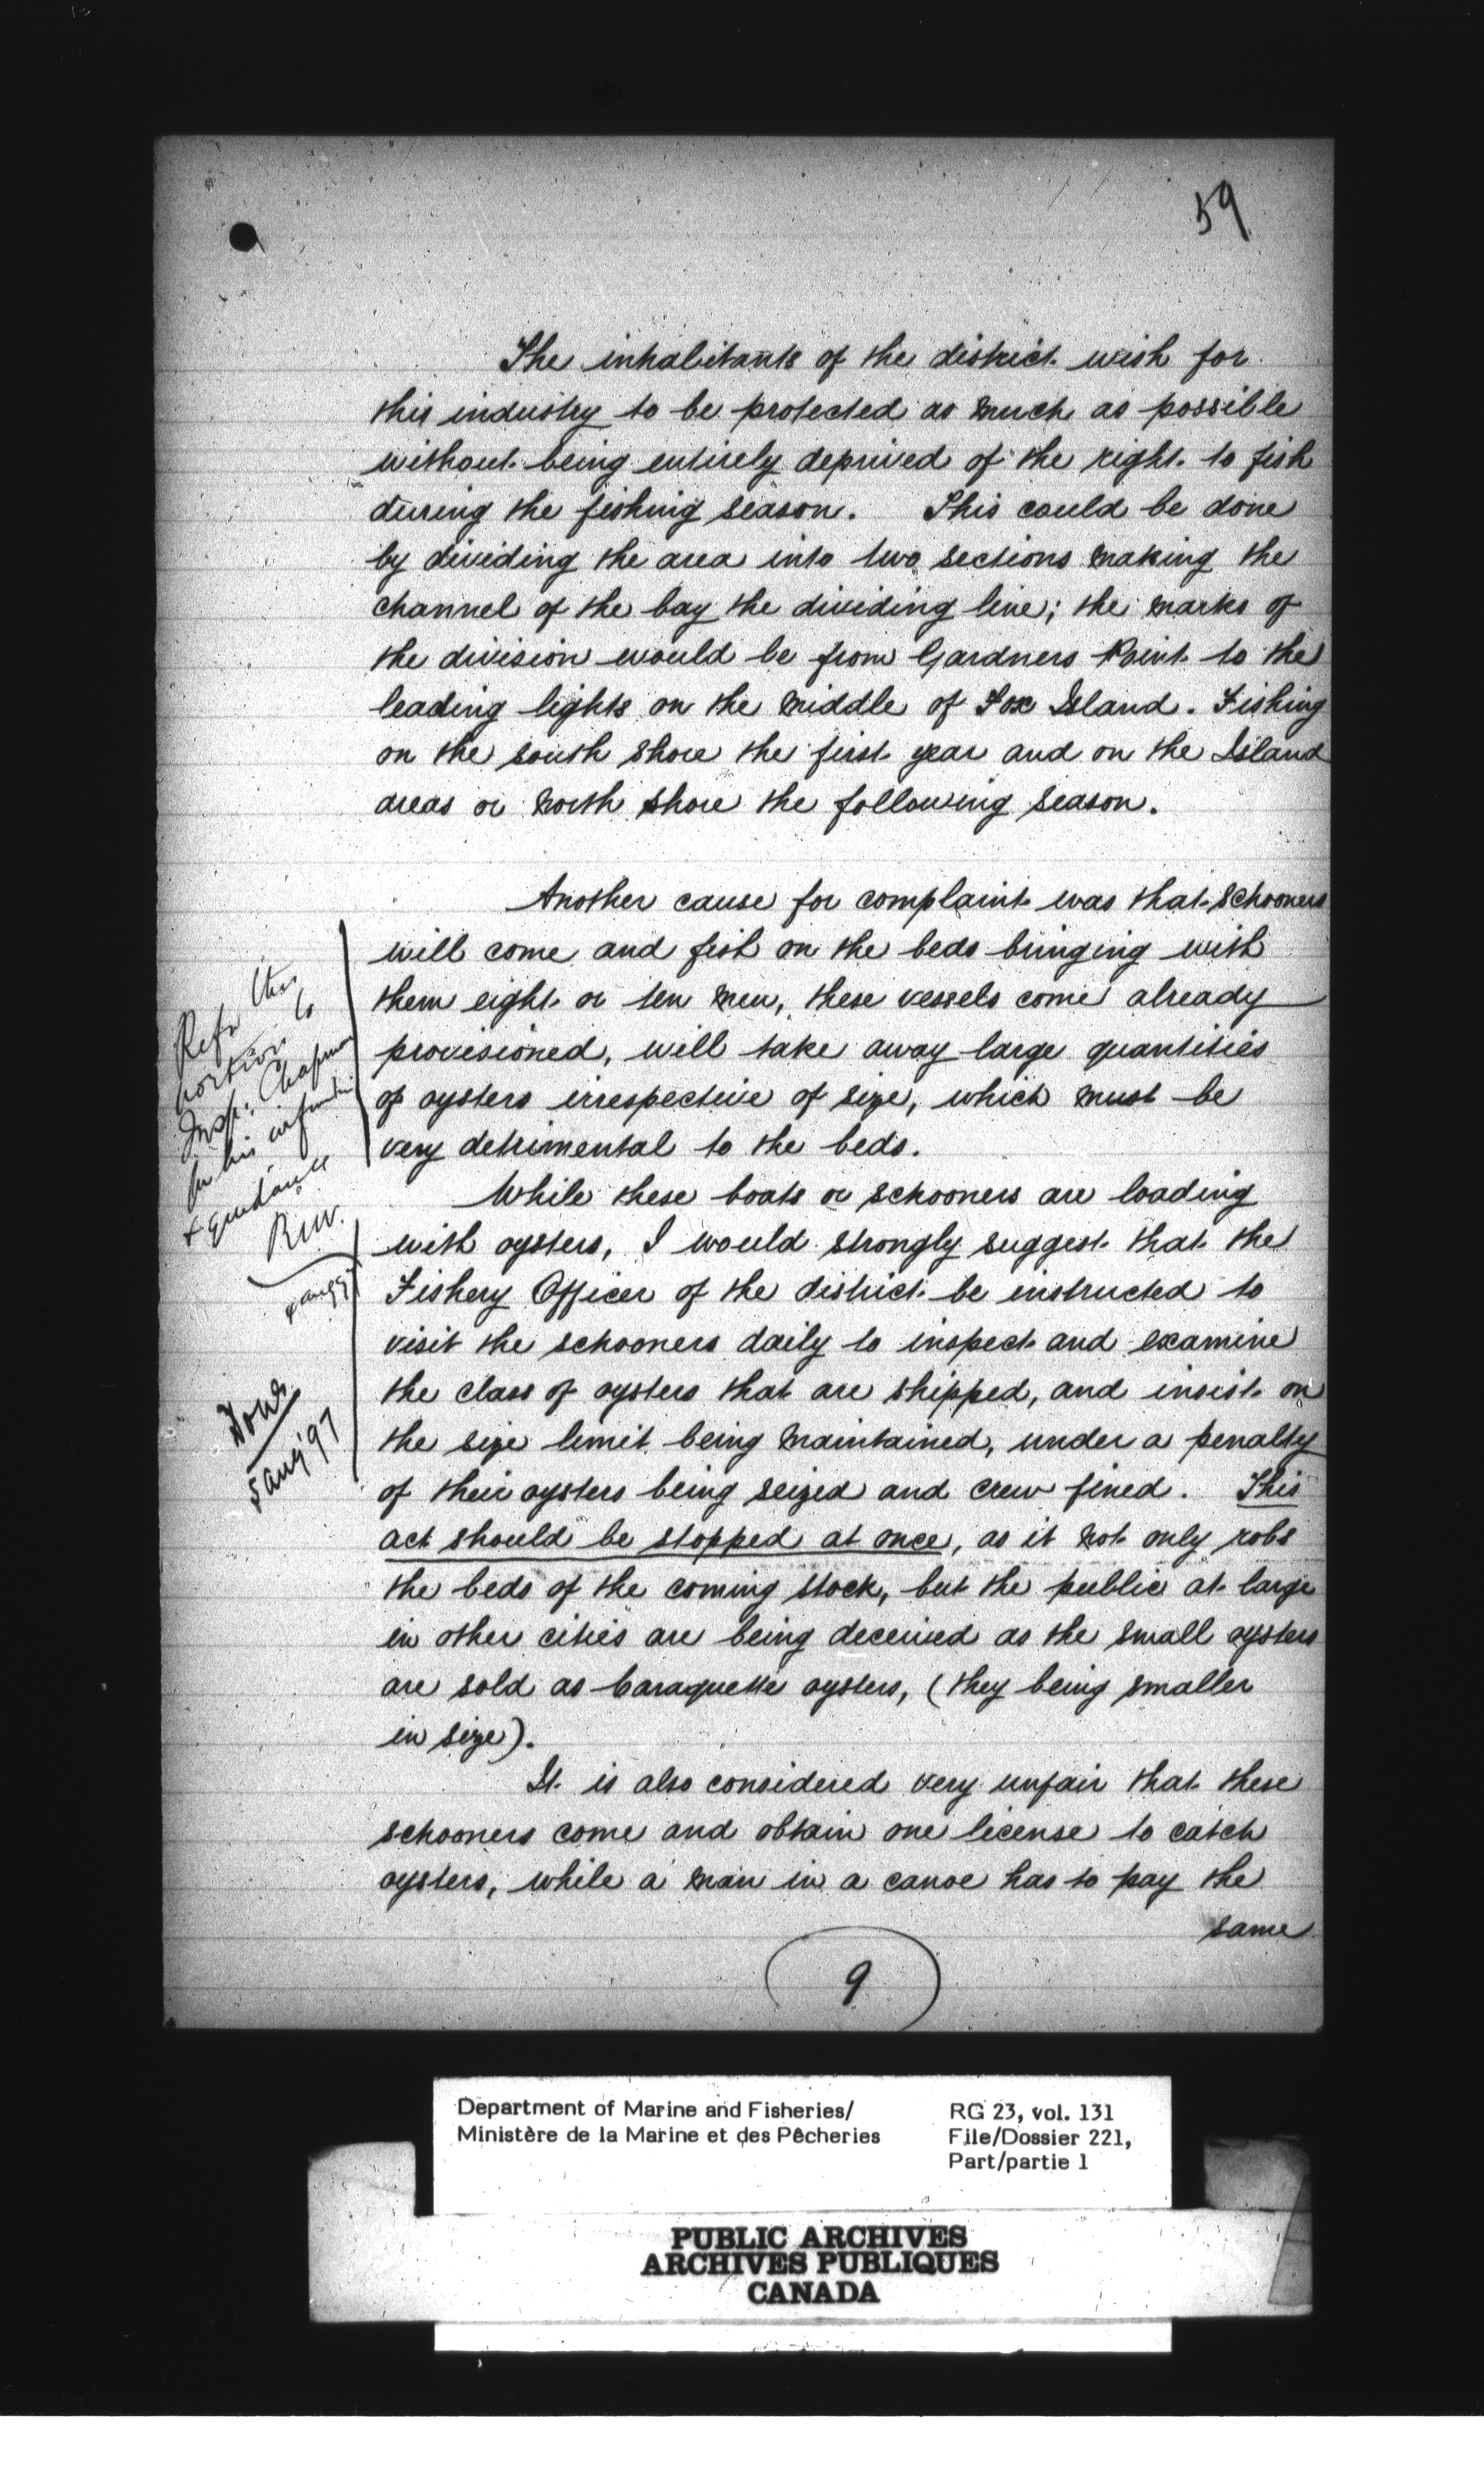 59
The inhabitants of the district wish for
this industry to be protected as much as possible
without being entirely deprived of the right to fish
during the fishing season. This could be done
by dividing the area into two sections making the
channel of the bay the dividing line; the marks of
the division would be from Gardners Point to the
leading lights on the middle of Fox Island. Fishing
on the south shore the first year and on the Island
areas or north shore the following season.
Another cause for complaint was that schooners
will come and fish on the beds bringing with
them eight or ten men, these vessels come already
provisioned, will take away large quantities
of oysters irrespective of size, which must be
very detrimental to the beds.
While these boats or schooners are loading
with oysters, I would strongly suggest that the
Fishery Officer of the district be instructed to
visit the schooners daily to inspect and examine
the class of oysters that are shipped, and insist on
the size limit being maintained, under a penalty
of their oysters being seized and crew fined. This
act should be stopped at once, as it not only robs
the beds of the coming stock, but the public at large
in other cities are being deceived as the small oysters
are sold as Caraquette oysters, (they being smaller
in size).
It is also considered very unfair that these
schooners come and obtain one license to catch
oysters, while a man in a canoe has to pay the
same
9
Refer this
portion to
Insp: Chapman
for his information
& guidance
Done
5 aug '97
Department of Marine and Fisheries/
Ministère de la Marine et des Pêcheries
RG 23, vol. 131
File/Dossier 221,
Part/partie 1
PUBLIC ARCHIVES
ARCHIVES PUBLIQUES
CANADA